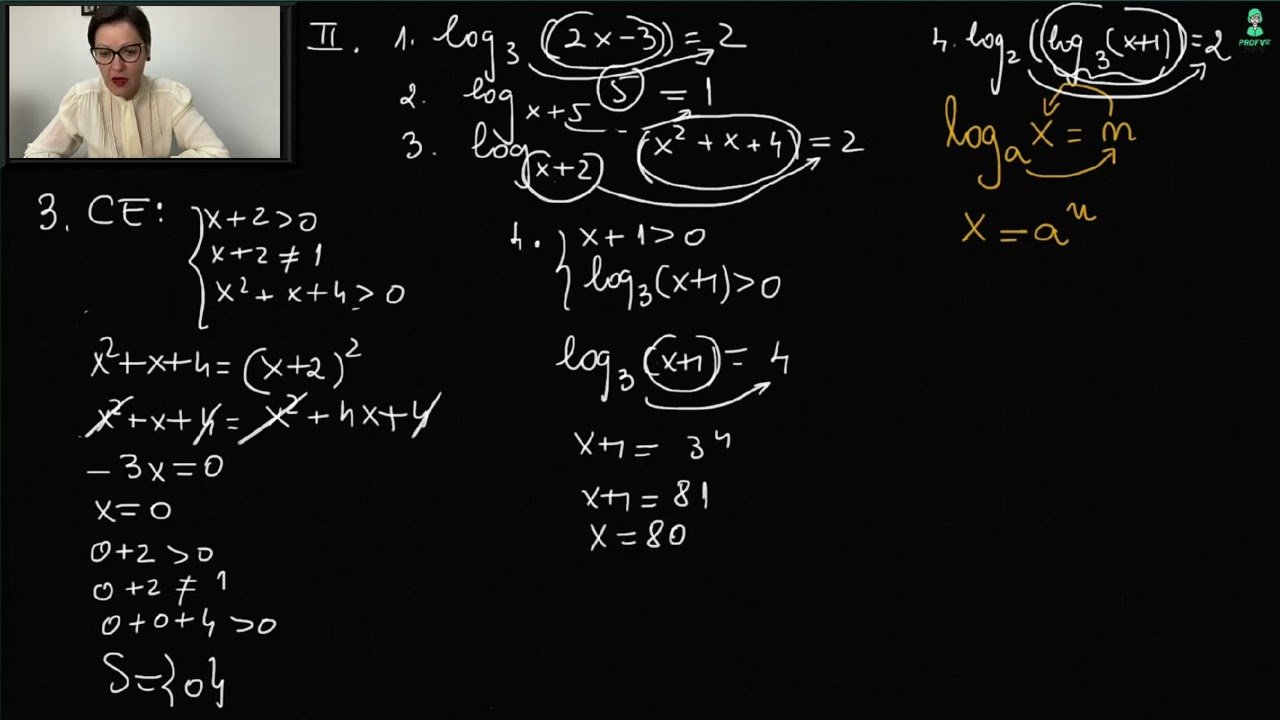 II. 1. log₃ (2x-3) = 2
2. log_{x+5} 5 = 1
3. log_{x+2} (x² + x + 4) = 2
4. log₂ (log₃ (x+1)) = 2
PROFA
logₐ x = n
x = aⁿ
3. CE: { x + 2 > 0
x + 2 ≠ 1
x² + x + 4 > 0
x² + x + 4 = (x + 2)²
x² + x + 4 = x² + 4x + 4
- 3x = 0
x = 0
0 + 2 > 0
0 + 2 ≠ 1
0 + 0 + 4 > 0
S = {0}
4. { x + 1 > 0
log₃ (x+1) > 0
log₃ (x+1) = 4
x+1 = 3⁴
x+1 = 81
x = 80